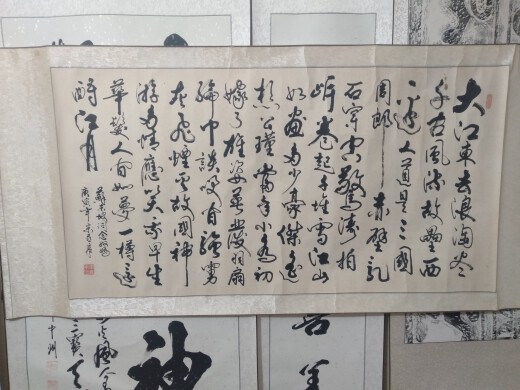 大江東去浪淘盡
千古風流故壘西
邊人道是三國
周郎赤壁亂
石穿空驚濤拍
岸卷起千堆雪江山
如畫多少豪傑遙
想公瑾當年小喬初
嫁了雄姿英發羽扇
綸巾談笑間強虜
灰飛煙滅故國神
游多情應笑我早生
華髮人間如夢一樽還
酹江月
蘇東坡詞念奴嬌
庚寅年
神